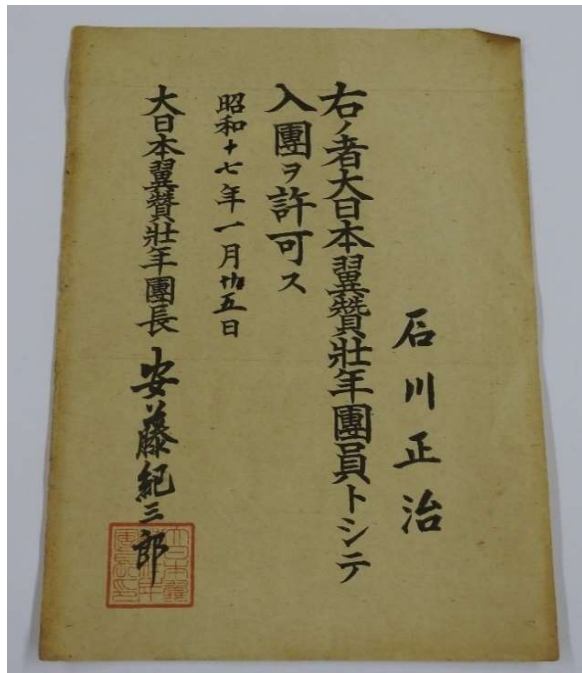 石川正治
右ノ者大日本翼贊壯年團員トシテ
入團ヲ許可ス
昭和十七年一月廿五日
大日本翼贊壯年團長 安藤紀三郎